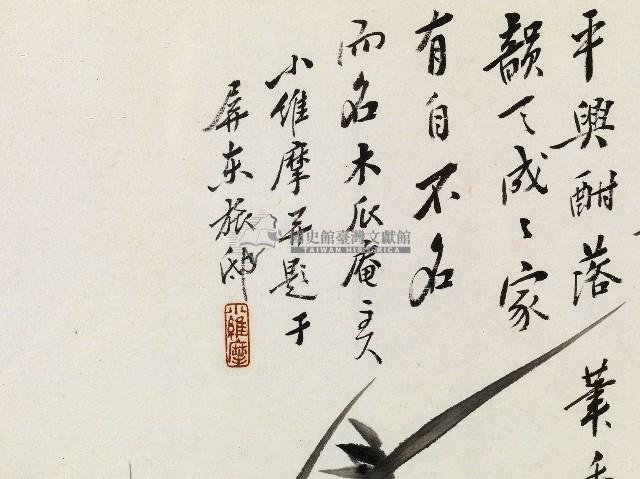 平興酣落筆
韻天成〻家
有自不名
而名木瓜庵主人
小維摩并題于
屏东旅邸
小維摩
國史館臺灣文獻館
TAIWAN HISTORICA